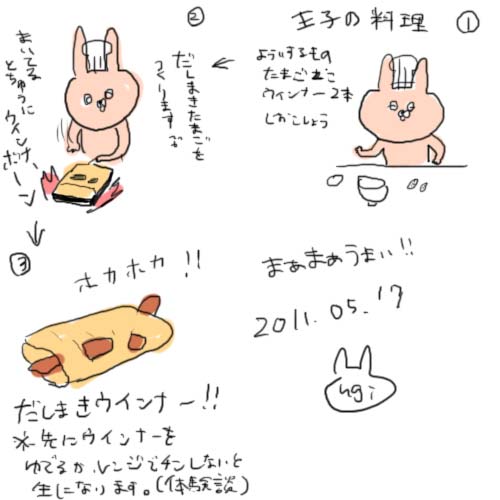 王子の料理 ①
よういするもの
たまご2こ
ウインナー2本
しおこしょう
②
だしまきたまごを
つくりますが
まいてる
とちゅうに
ウインナー
ポーン
③
ホカホカ!!
だしまきウインナー!!
※先にウインナーを
ゆでるか、レンジでチンしないと
生になります。(体験談)
まぁまぁうまい!!
2011.05.17